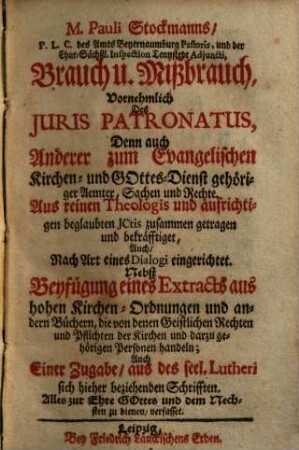 M. Pauli Stockmanns/
P. L. C. des Amts Beyernaumburg Pastoris, und der
Chur-Sächs. Inspection Tennstedt Adjuncti,
Brauch u. Mißbrauch,
Vornehmlich
Des
JURIS PATRONATUS,
Denn auch
Anderer zum Evangelischen
Kirchen- und GOttes-Dienst gehöri-
ger Aemter, Sachen und Rechte,
Aus reinen Theologis und aufrichti-
gen beglaubten JCtis zusammen getragen
und bekräfftiget,
Auch/
Nach Art eines Dialogi eingerichtet.
Nebst
Beyfügung eines Extracts aus
hohen Kirchen-Ordnungen und an-
dern Büchern, die von denen Geistlichen Rechten
und Pflichten der Kirchen und darzu ge-
hörigen Personen handeln;
Auch
Einer Zugabe/ aus des seel. Lutheri
sich hieher beziehenden Schrifften.
Alles zur Ehre GOttes und dem Nech-
sten zu dienen/ verfasset.
Leipzig,
Bey Friedrich Lanckischens Erben.